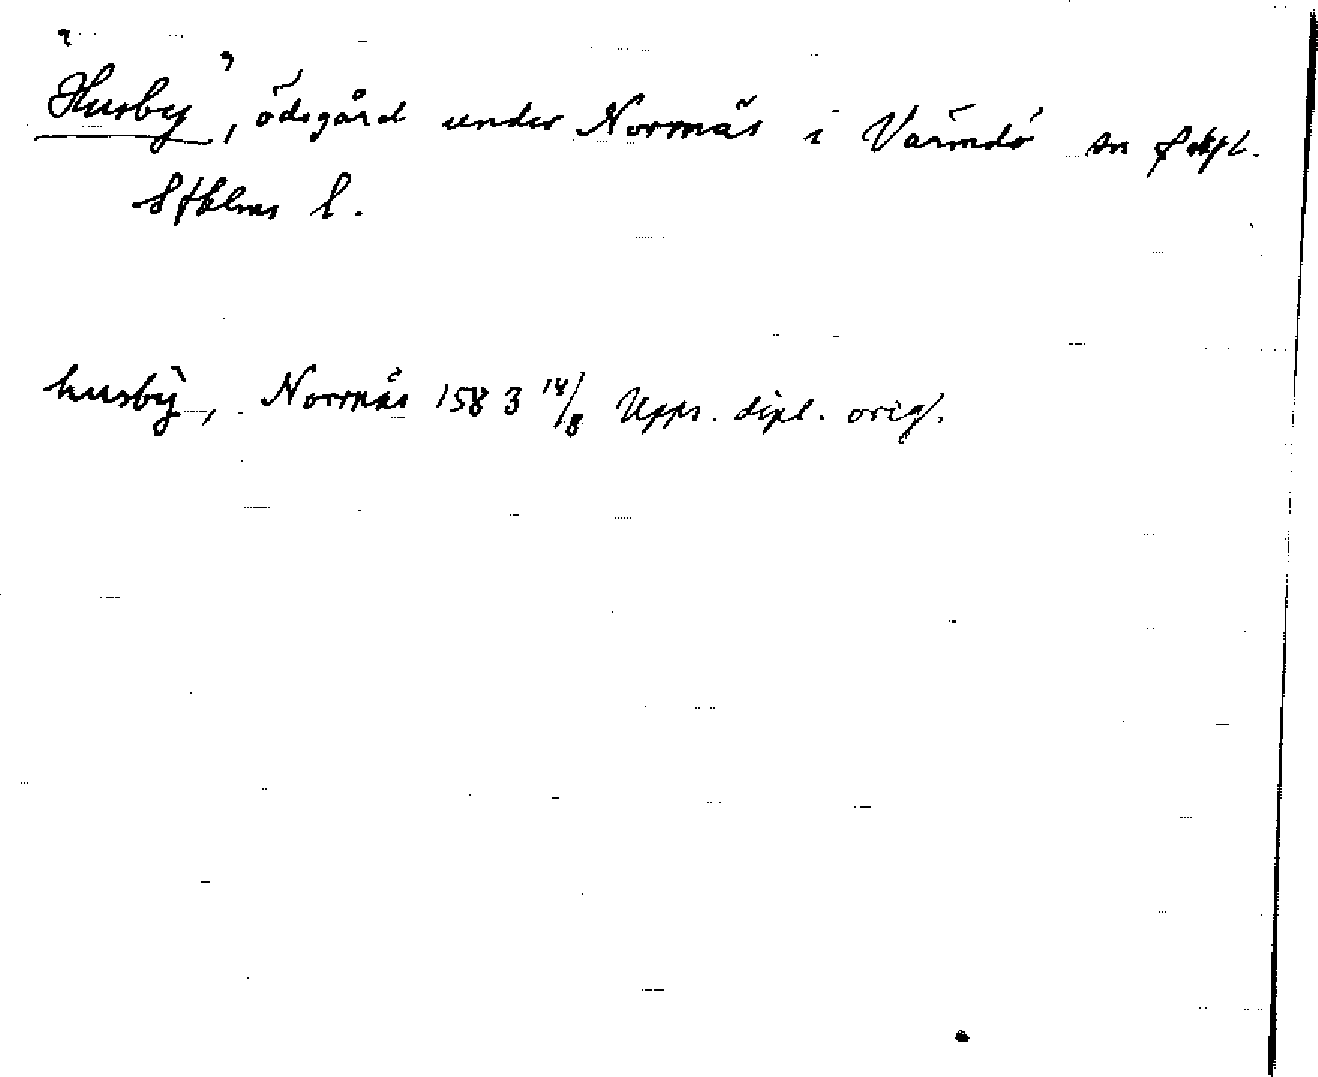 "Husby", ödegård under Norrnäs i Värmdö sn o skpl.
Sthlms l.
husbÿ, Norrnäs 1583 14/8 Upps. dipl. orig.